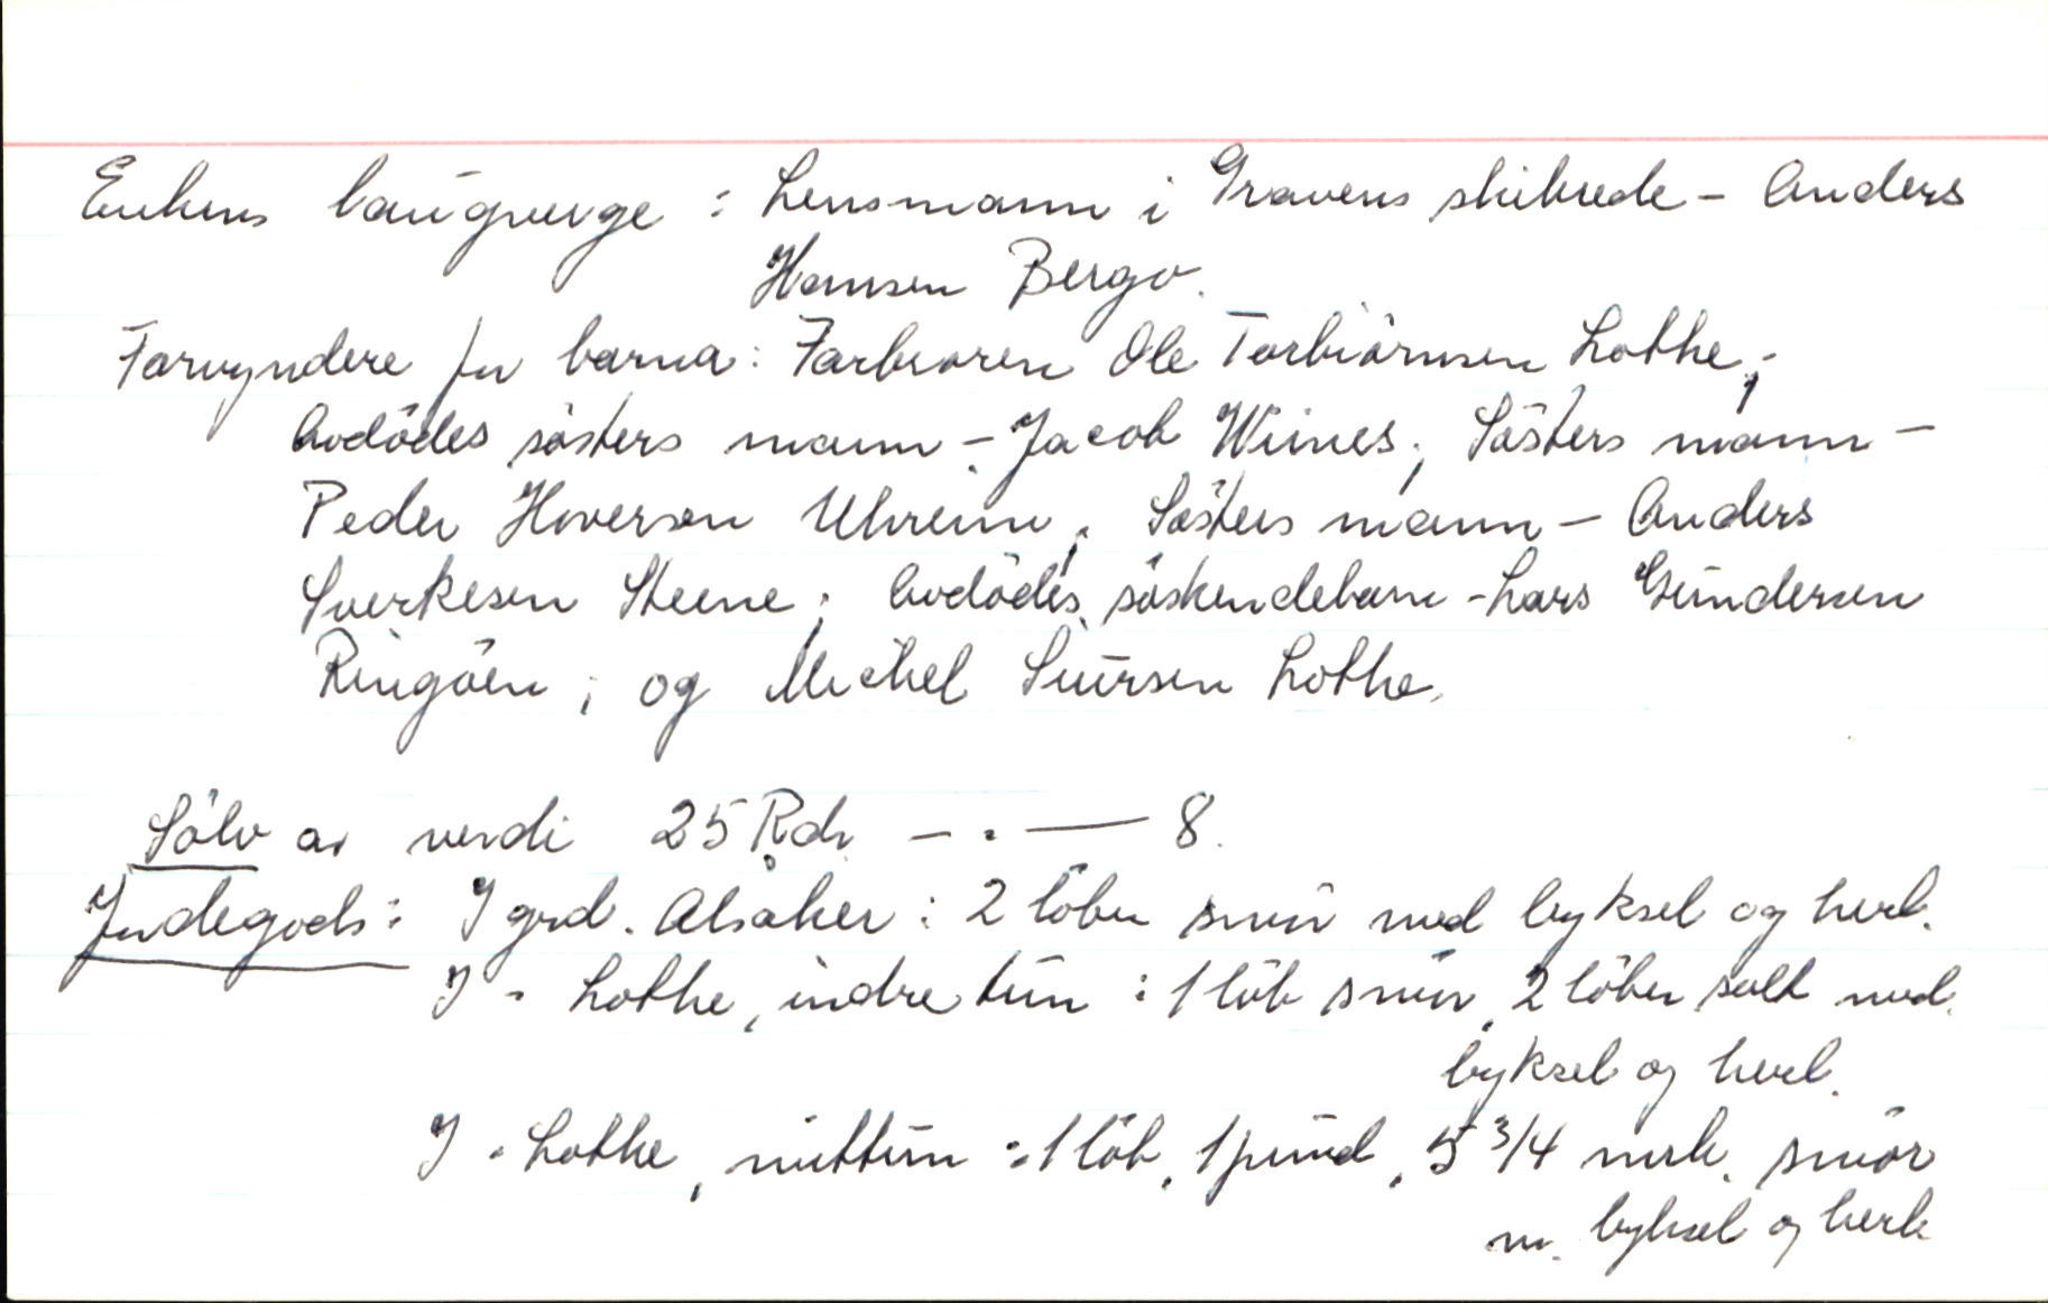 Enkens laugverge : Lensmann i Gravens skibrede - Anders
Hansen Bergo.
Formyndere for barna: Farbroren Ole Torbiörnsen Lothe;
Avdödes sösters mann - Jacob Wiines; Sösters mann -
Peder Hoversen Uhreim; Sösters mann - Anders
Sverkesen Steene; Avdödes söskendebarn - Lars Gundersen
Ringöen; og Michel Siursen Lothe.
Sölv av verdi 25 Rdr. - . - 8.
Jordegods: I grd. Alsaker: 2 löber smör med byksel og herl.
I " Lothe, indre tun : 1 löb smör, 2 löber salt med
byksel og herl.
I " Lothe, mittun : 1 löb, 1 pund, 5 3/4 mrk. smör
m. byksel og herl.